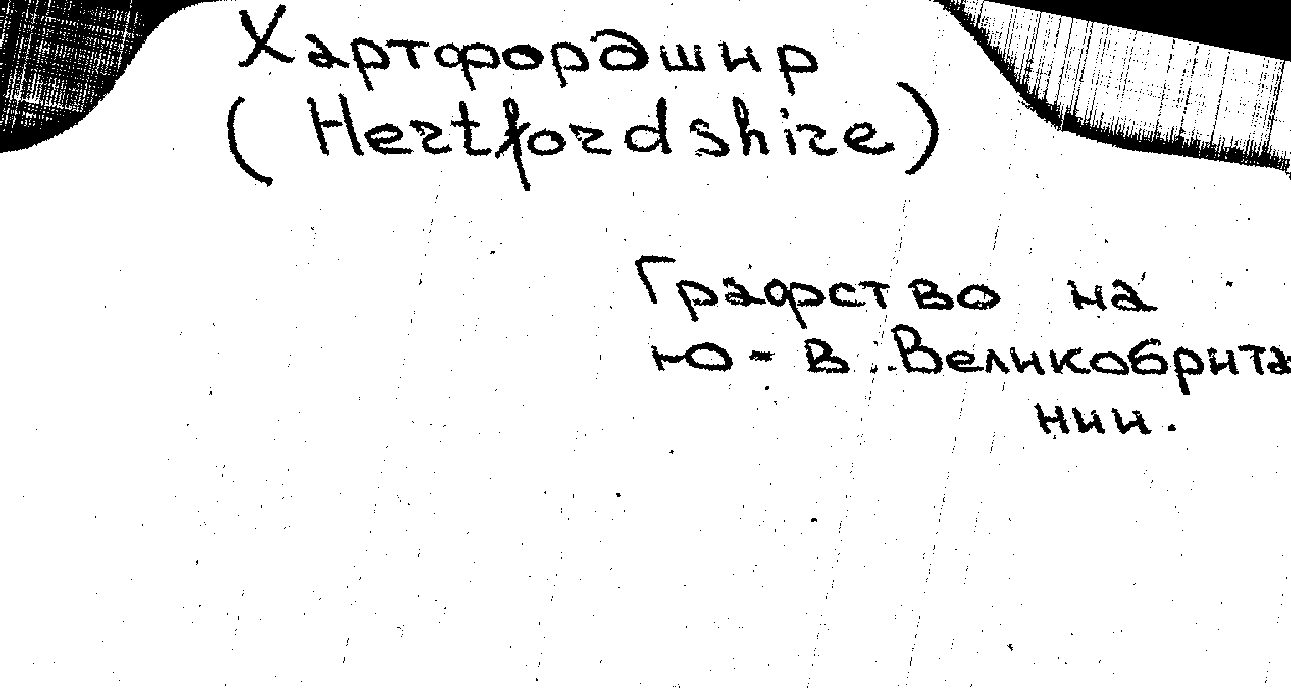 Хартфордшир
(Hertfordshire)
Графство на
Ю-В Великобрита
нии.